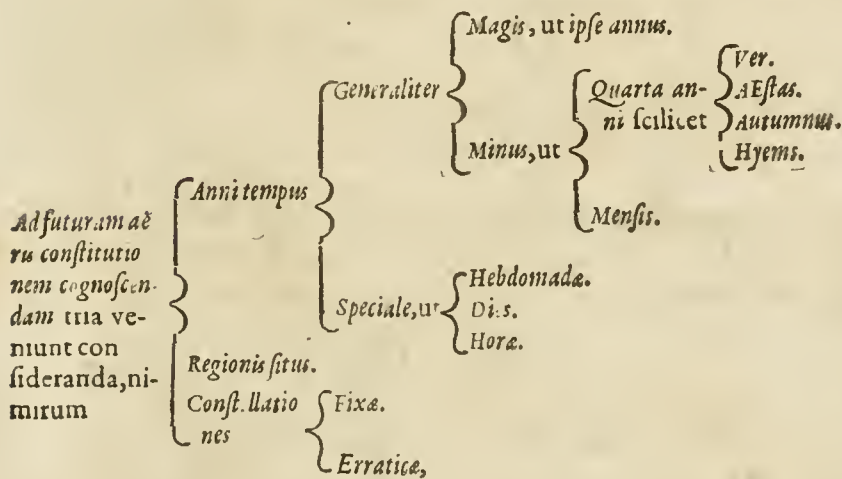 Ad futuram aë
ris constitutio
nem cognoscen-
dam tria ve-
niunt con
sideranda, ni-
mirum
Anni tempus
Generaliter
Magis, ut ipse annus.
Minus, ut
Quarta an-
ni scilicet
Ver.
AEstas.
Autumnus.
Hyems.
Mensis.
Speciale, ut
Hebdomadæ.
Dies.
Horæ.
Regionis situs.
Constellatio
nes
Fixæ.
Erraticæ,